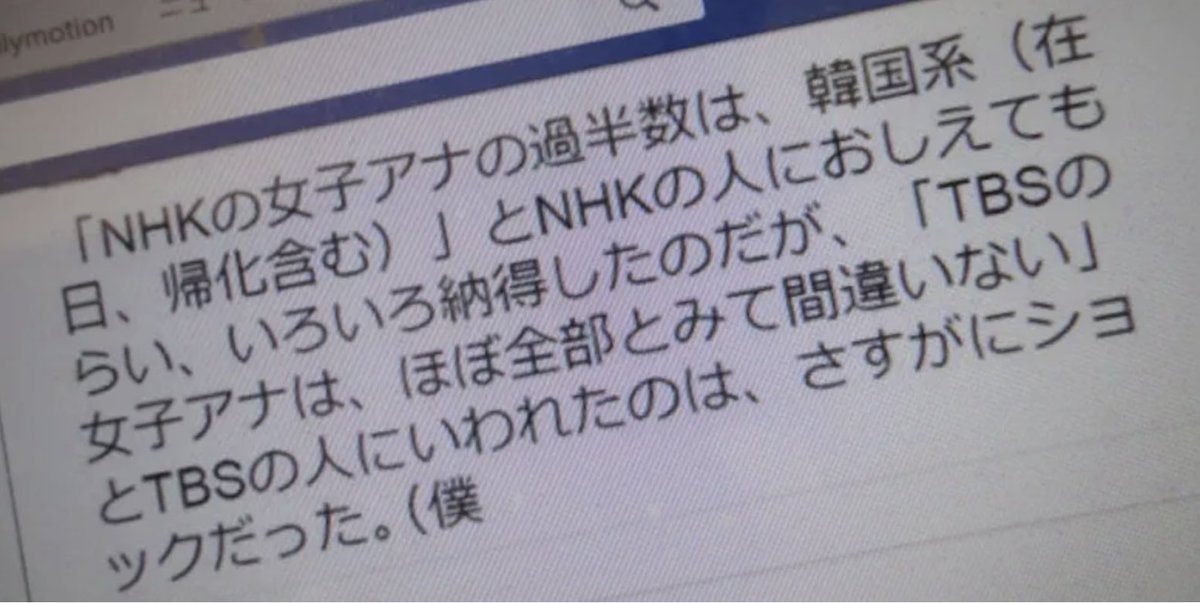 ilymotion
ニュ
「NHKの女子アナの過半数は、韓国系（在
日、帰化含む）」とNHKの人におしえても
らい、いろいろ納得したのだが、「TBSの
女子アナは、ほぼ全部とみて間違いない」
とTBSの人にいわれたのは、さすがにショ
ックだった。（僕